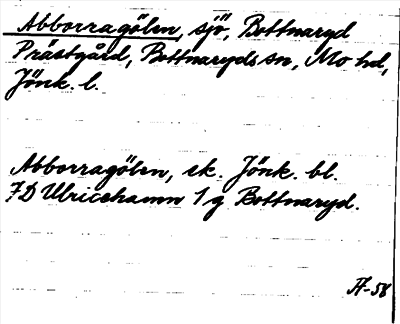 Abborragölen, sjö, Bottnaryd
Prästgård, Bottnaryds sn, Mo hd,
Jönk. l.
Abborragölen, ek. Jönk. bl.
7D Ulricehamn 1 g Bottnaryd.
Ff-58